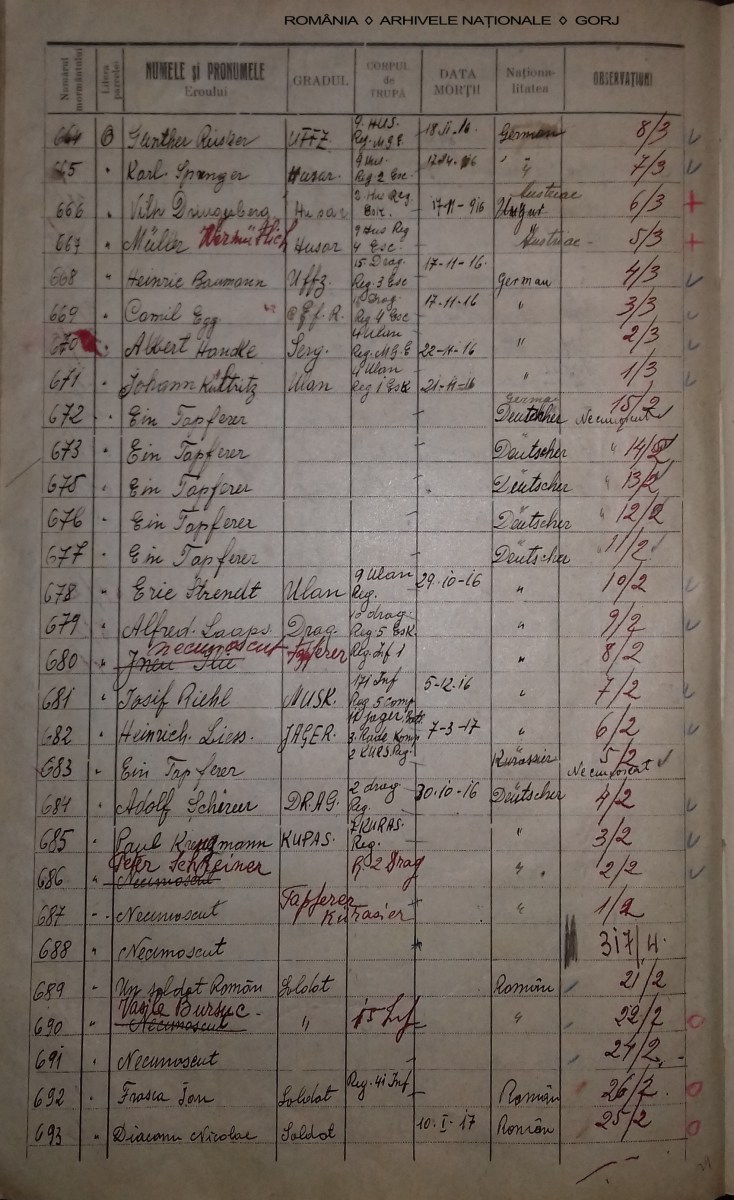 ROMÂNIA ◊ ARHIVELE NAȚIONALE ◊ GORJ
Numărul mormântului Litera parcelei NUMELE și PRONUMELE Eroului GRADUL CORPUL de TRUPĂ DATA MORȚII Naționalitatea OBSERVAȚIUNI
664 B Günther UFFZ. 9. HUS. Reg. M.G.E 18.11.16. German 8/3
665 " Karl Husar. 9 Hus. Reg 2 Esc. " 7/3
666 " Husar Hus Reg 17-11-916 Austriac 6/3 +
667 " Müller Husar 9 Hus Reg 4 Esc. Austriac - 5/3 +
668 " Heinric Baumann Uffz. 15 Drag. Reg. 3 Esc 17-11-16. German 4/3
669 " Camil Egg. Gef. R. Drag. Reg 4 Esc 17-11-16 " 3/3
670 " Albert Handke Serg. 4 Ulan Reg. M.G.E 22-11-16 " 2/3
671 " Johann Ulan 4 Ulan Reg 1 Esk. 21-11-16 " 1/3
672 " Ein Tapferer - German Deutscher Necunoscut 15/2
673 " Ein Tapferer - Deütscher " 14/2
675 " Ein Tapferer Deütscher " 13/2
676 " Ein Tapferer - Deütscher " 12/2
677 " Ein Tapferer - Deütscher 11/2
678 " Eric Strendt Ulan 9 Ulan Reg. 29-10-16 " 10/2
679 " Alfred. Laaps. Drag. drag. Reg. 5 Esk. " 9/2
680 " necunoscut Tapferer Reg. Inf 1 " 8/2
681 " Iosif Riehl MUSK. 171 Inf Reg. 5 comp 5-12.16 " 7/2
682 " Heinrich. Liess. JÄGER. jäger 7-3-17 " 6/2
683 " Ein Tapferer 2 KÜRS. Reg. Kürassier Necunoscut 5/2
684 " Adolf Scherer DRAG. 2 drag Reg. 30.10-16 Deütscher 4/2
685 " Paul KUPAS. 7 KURAS. Reg. " 3/2
686 " Peter Schkeiner Necunoscut R. 2 Drag " 2/2
687 " Necunoscut Tapferer Kürasier " 1/2
688 " Necunoscut 317/4.
689 " Un soldat Român Soldat Român 21/2
690 " Vasile Bursuc. Necunoscut " 15 Inf " 22/2
691 " Necunoscut - 24/2
692 " Frasca Ion Soldat Reg. 41 Inf Român 26/2
693 " Diaconu Nicolae Soldat 10. I-17 Român 25/2